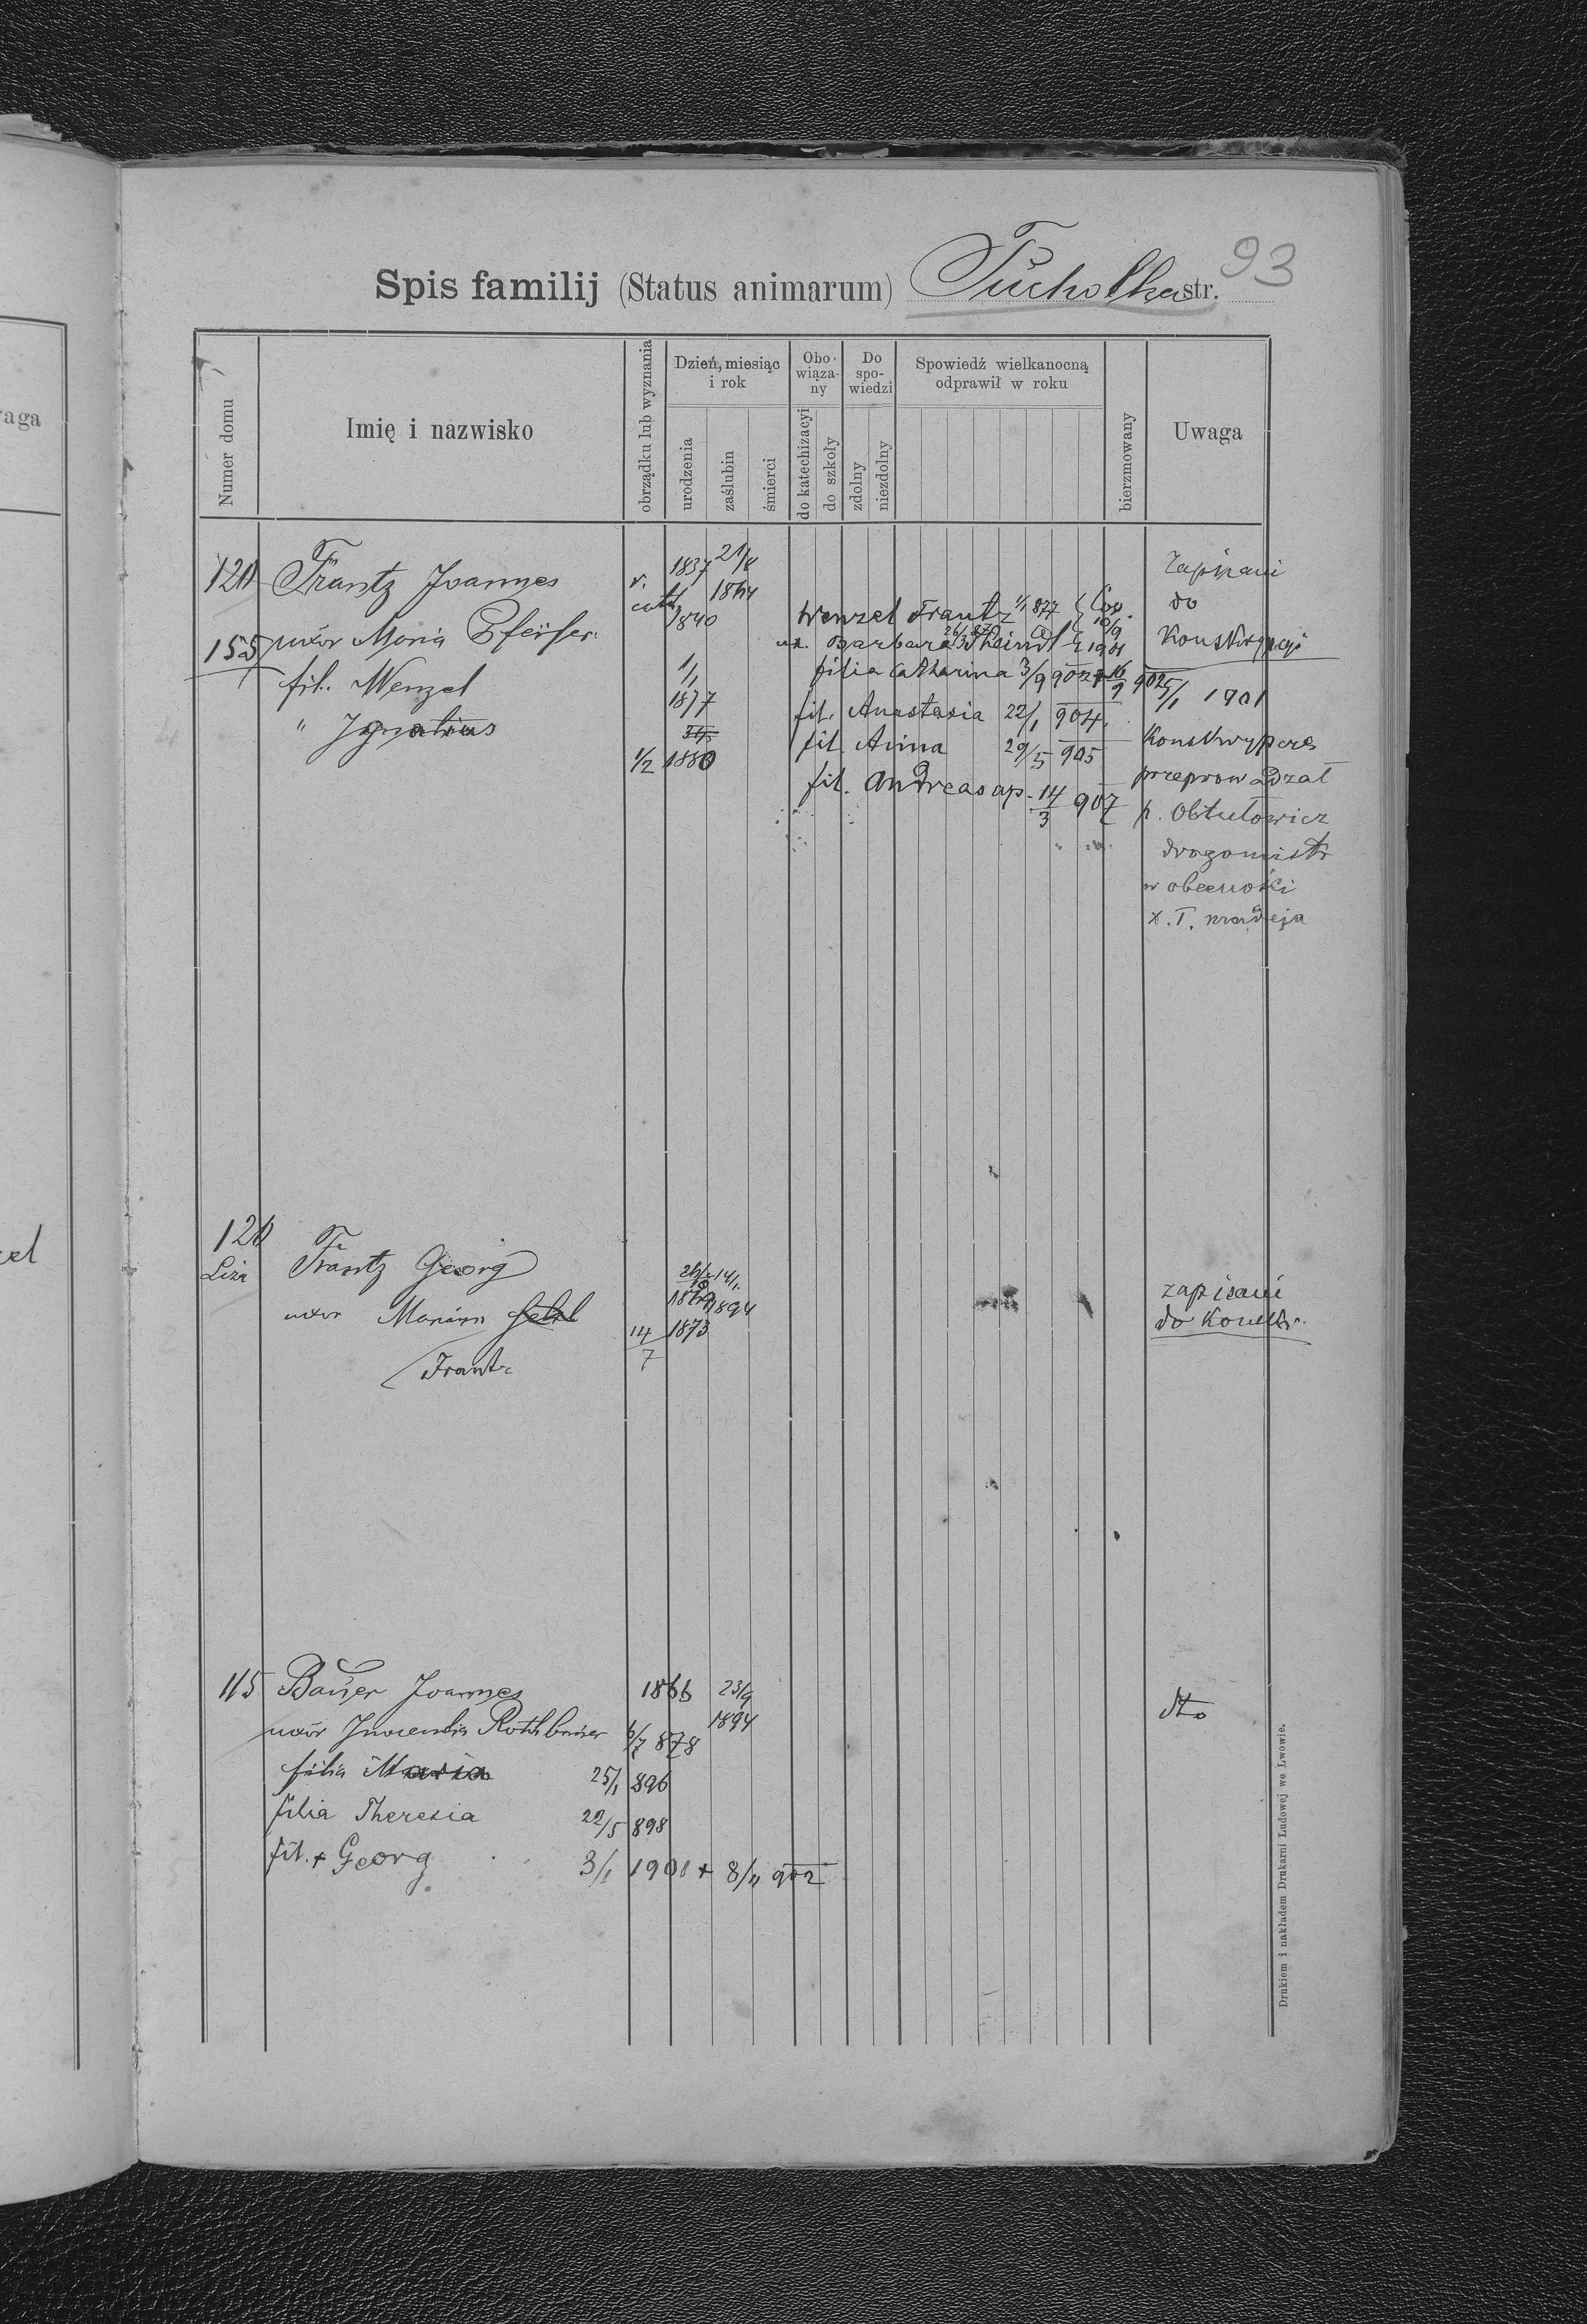 93
Spis familij (Status animarum) Tucholka str.
Numer domu
Imię i nazwisko
obrządku lub wyznania
Dzień, miesiąc i rok
urodzenia
zaślubin
śmierci
Obowiązany
do katechizacyi
do szkoły
Do spowiedzi
zdolny
niezdolny
Spowiedź wielkanocną odprawił w roku
bierzmowany
Uwaga
aga
120 Frantz Joannes r. cath. 1837 21/8 1864 zapisani
155 uxor Maria 1840 do
Wenzel Frantz 1/1 877 Cop. 10/9 1901
ux. Barbara 26/3 Konskrypcyi
fil. Wenzel 1/1 1877 filia Catharina 3/9 902 + 16/9 902
5/1 1901
" Ignatius 1/2 1880 fil. Anastasia 22/1 904
fil. Anna 29/5 905 Konskrypcres
fil. Andreas ap. 14/3 907 przeprowadzał
p. Obtułowicz
drogomistr
w obecności
x. T.
120
Frantz Georg 14/1 1894 zapisani
uxor Mariam 14/7 1873 do Konskr.
Frantz
115 Bauer Joannes 1866 23/9 1894 dto
uxor Inocentia Rothbauer 6/7 878
filia Maria 25/1 896
filia Theresia 22/5 898
fil. + Georg 3/1 1901 + 8/11 902
Drukiem i nakładem Drukarni Ludowej we Lwowie.